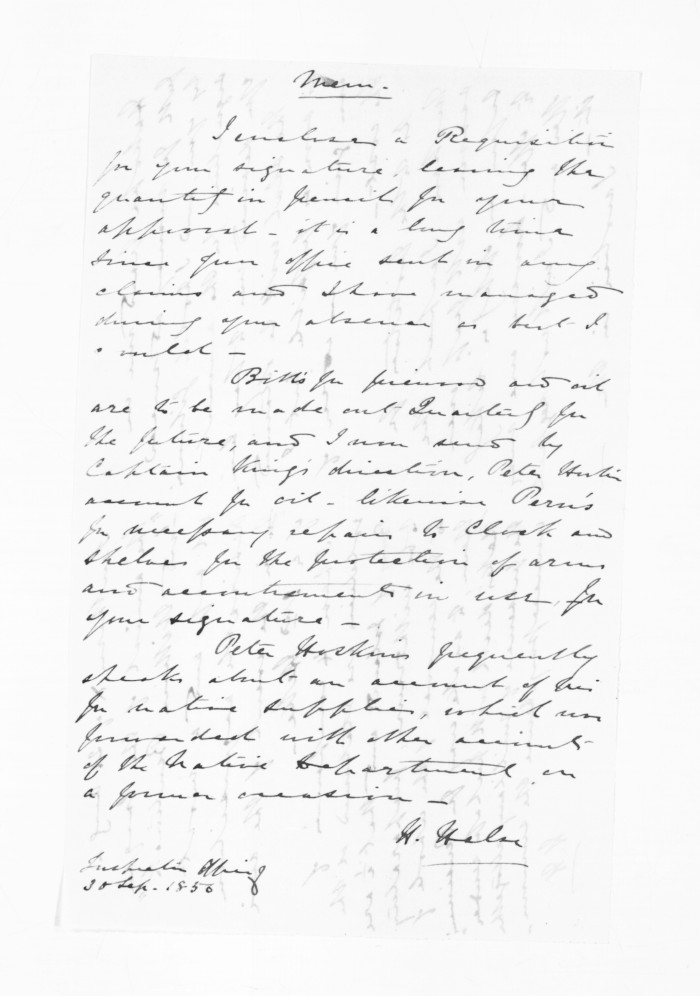 Mem.
I enclose a Requisition
for your signature, leaving the
quantity in pencil for your
approval - it is a long time
since your office sent in any
claims and I have managed
during your absence as best I
could -
Bills for firewood and oil
are to be made out Quarterly for
the future, and I now send by
Captain King's direction, Peter
account for oil - likewise
for necessary repairs to Clock and
shelves for the protection of arms
and accoutrements in use, for
your signature -
Peter Hoskins frequently
speaks about an account of his
for native supplies, which was
forwarded with other accounts
of the Native Department on
a former occasion -
H. Halse
Office
30 Sep. 1856